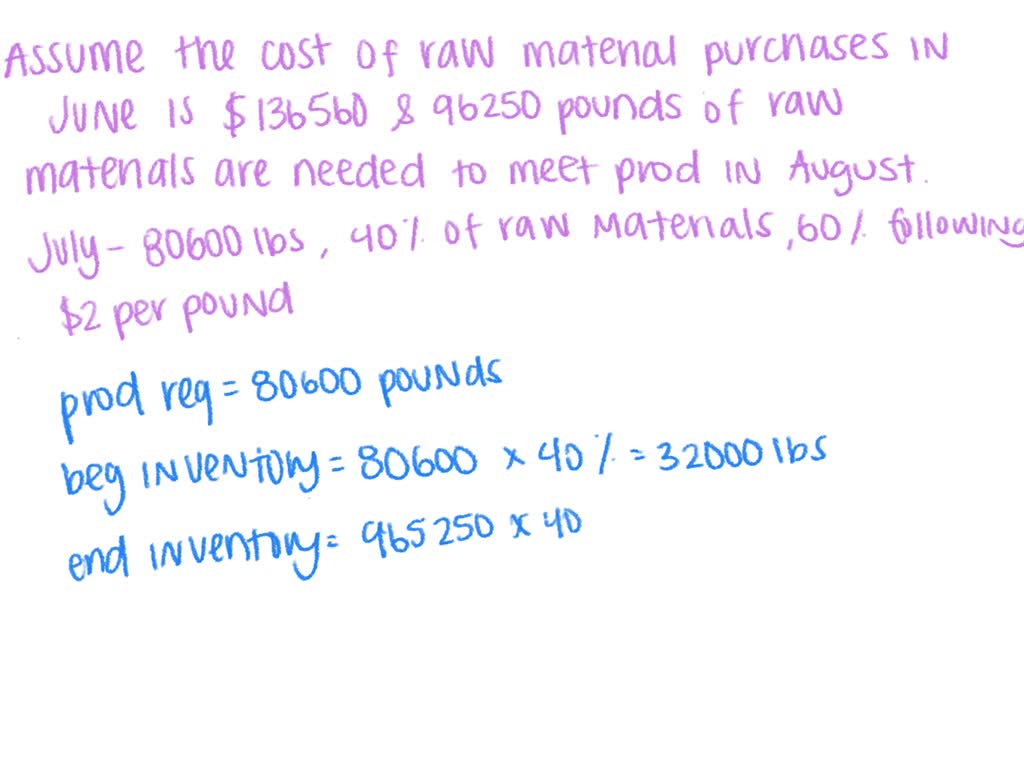 Assume the cost of raw material purchases in
June is $136560 & 96250 pounds of raw
materials are needed to meet prod in August.
July - 80600 lbs, 40% of raw materials, 60% following
$2 per pound
prod req = 80600 pounds
beg inventory = 80600 x 40% = 32000 lbs
end inventory = 965250 x 40